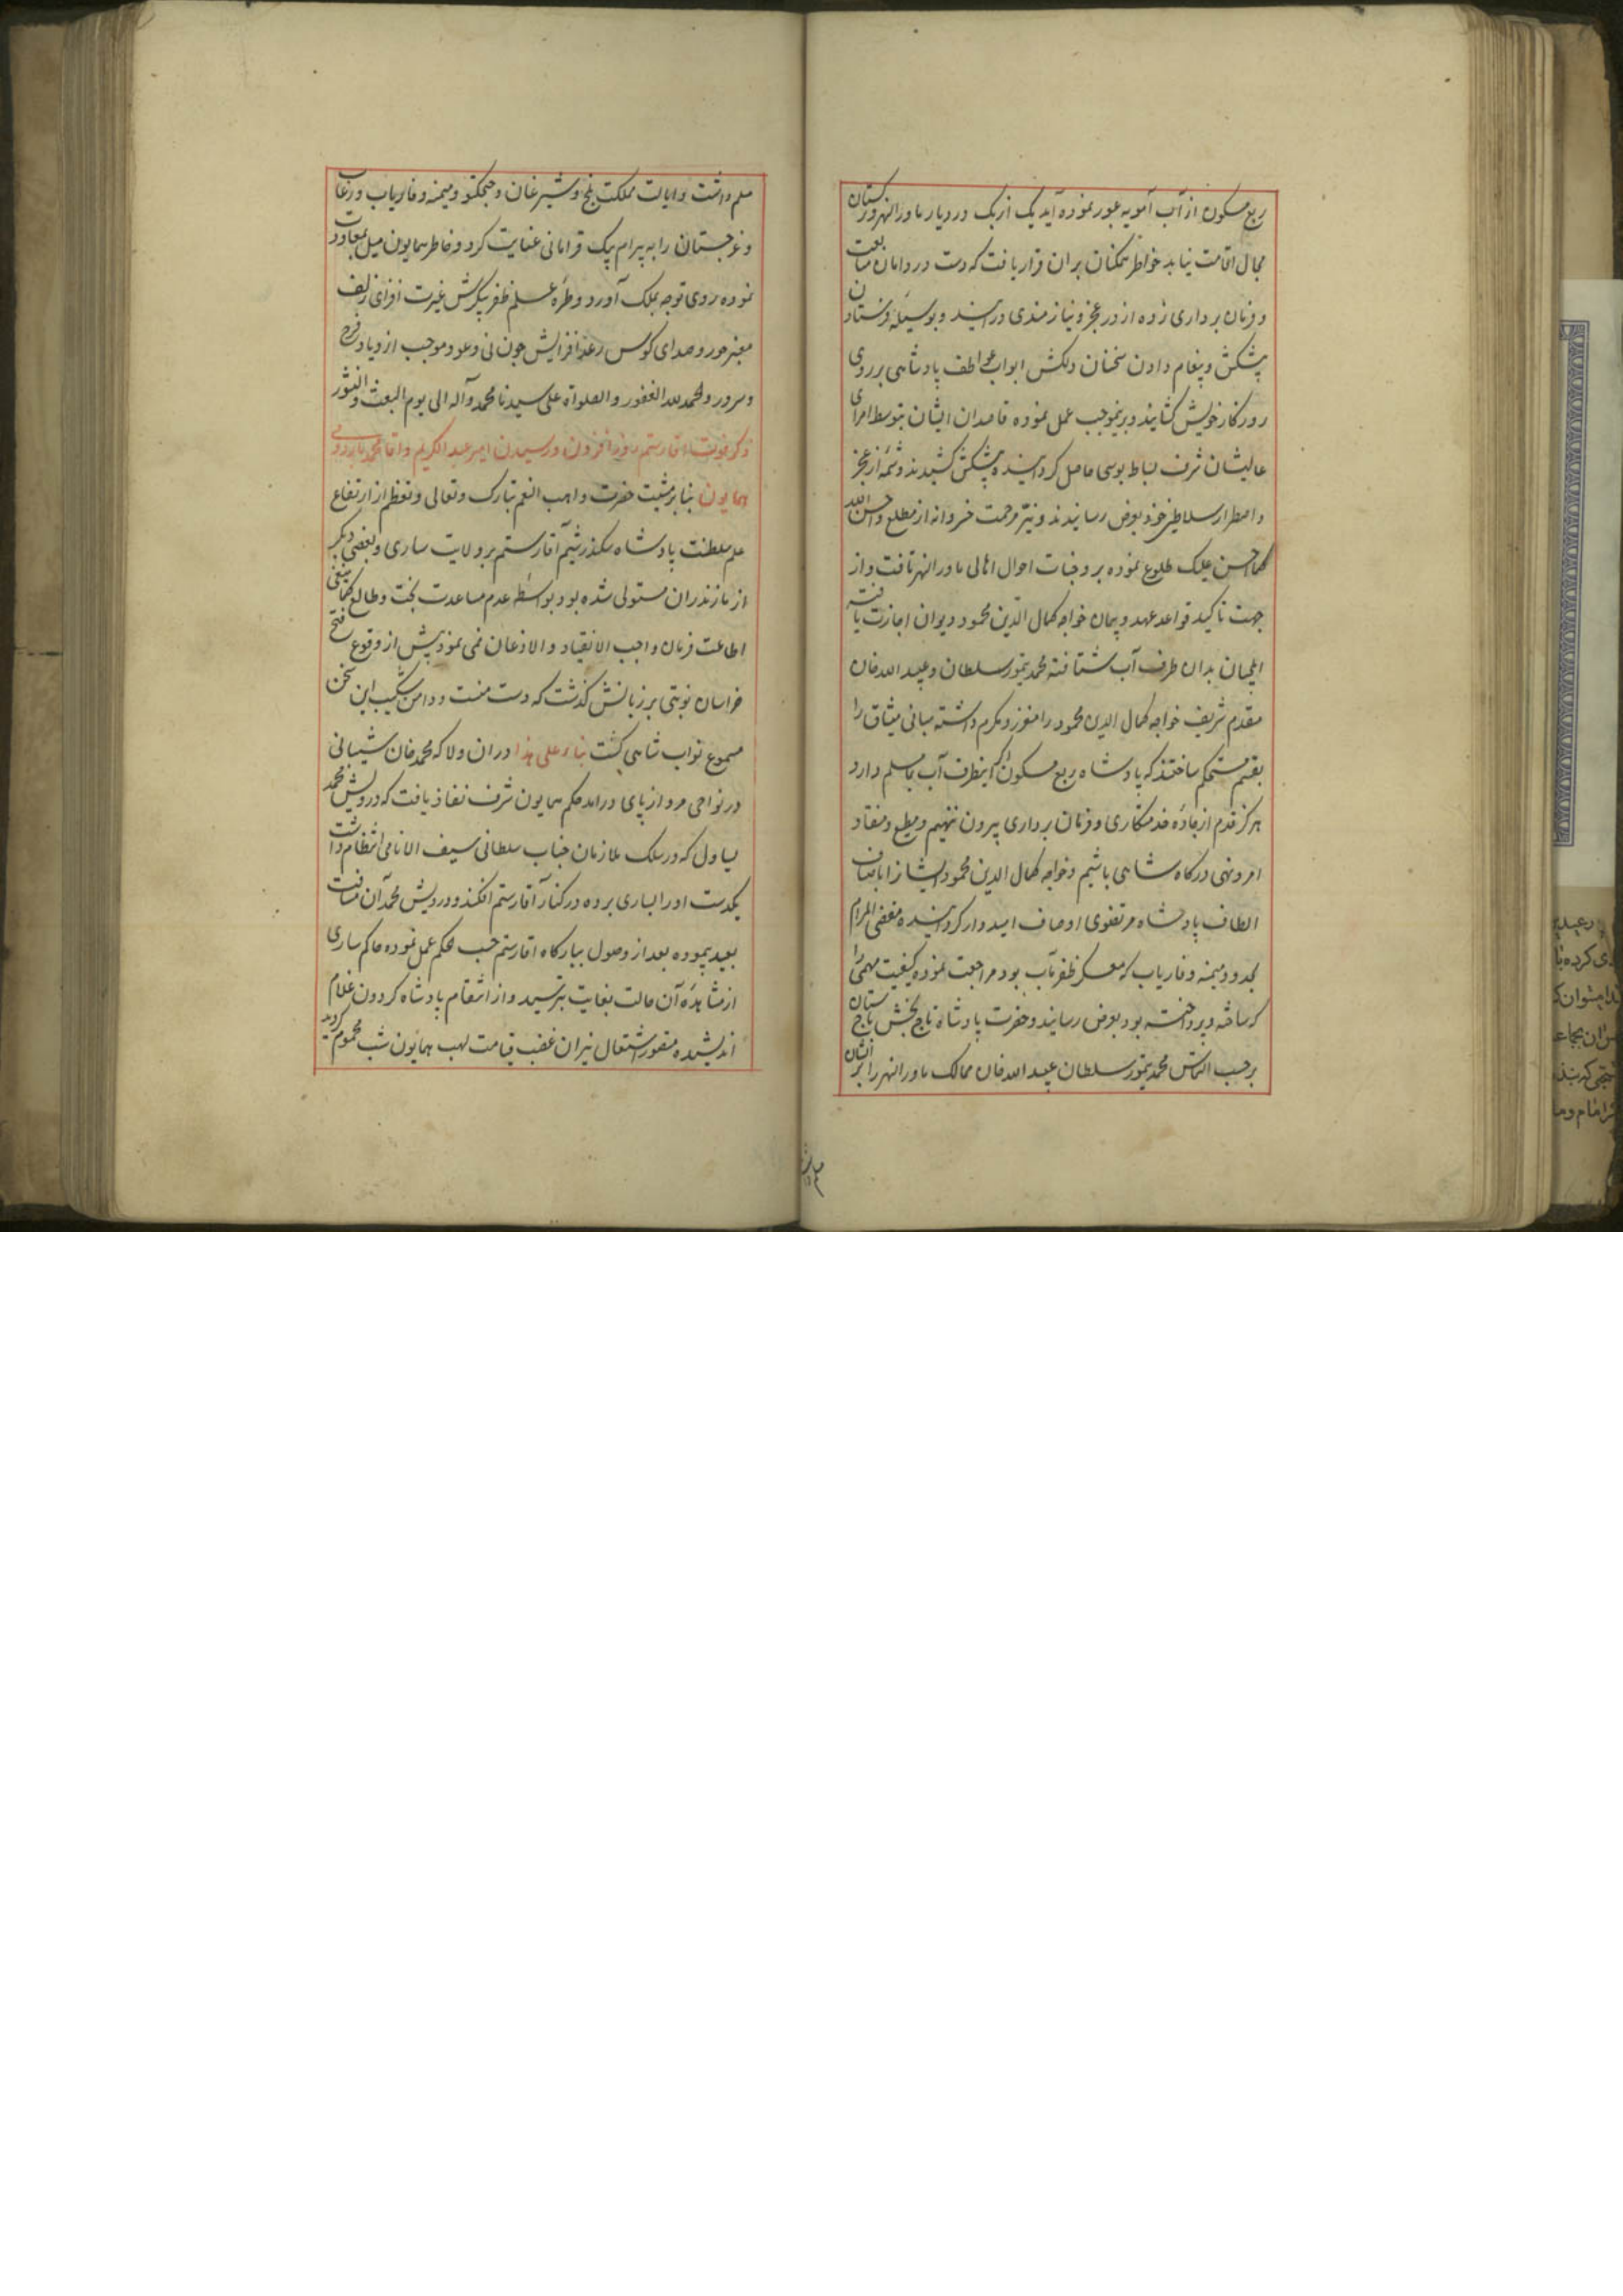 ربع مسکون از آب آمویه عبور نموده آید یک ازبک در دیار ماورالنهر و ترکستان
مجال اقامت نیابد خواطر همکنان بران قرار یافت که دست در دامان متابعت
و فرمان برداری زده از در عجز و نیازمندی درآیند و بوسیله فرستادن
پیشکش و پیغام دادن سخنان دلکش ابواب عواطف پادشاهی بر روی
روزکار خویش کشایند و برینموجب عمل نموده قاصدان ایشان بتوسط امرای
عالیشان شرف بساط بوسی حاصل کردانیده پیشکش کشیدند و شمه از عجز
و اضطرار سلاطین خود بعرض رسانیدند و نیر مرحمت خسروانه از مطلع و احسن الله
کما احسن علیک طلوع نموده بر وجنات احوال اهالی ماورالنهر تافت و از
جهت تاکید قواعد عهد و پیمان خواجه کمال الدین محمود دیوان اجازت یافته
ایلچیان بدان طرف آب شتافته محمد تیمور سلطان و عبید الله خان
مقدم شریف خواجه کمال الدین محمود را معزز و مکرم داشته مبانی میثاق را
بقسم مستحکم ساختند که پادشاه ربع مسکون اکر اینطرف آب بما مسلم دارد
هرکز قدم از جاده خدمتکاری و فرمان برداری بیرون ننهیم و مطیع و منقاد
امر و نهی درکاه شاهی باشیم و خواجه کمال الدین محمود ایشانرا باصناف
الطاف پادشاه مرتضوی اوصاف امیدوار کردانیده مقضی المرام
بحدود میمنه و فاریاب که معسکر ظفر مآب بود مراجعت نموده کیفیت مهمی را
که ساخته و پرداخته بود بعرض رسانید و حضرت پادشاه تاج بخش باج ستان
برحسب التماس محمد تیمور سلطان عبید الله خان ممالک ماورالنهر را بر ایشان
مسلم داشت و ایالت مملکت بلخ و شبرغان و جیجکتو و میمنه و فاریاب و مرغاب
و غرجستان را به بیرام بیک قرامانی عنایت کرد و خاطر همایون میل بمعاودت
نموده روی توجه بملک آورد و طره علم ظفر پیکرش غیرت افزای زلف
معنبر حور و صدای کوس رعد افزایش چون نی و عود موجب ازدیاد فرح
و سرور و الحمد لله الغفور و الصلواة علی سیدنا محمد و آله الی یوم البعث و النشور
ذکر فوت اقا رستم روز افزون و رسیدن امیر عبد الکریم و اقا محمد باردوی
همایون بنا بر مشیت حضرت واهب النعم تبارک و تعالی و تعظم از ارتفاع
علم سلطنت پادشاه سکندر شیم آقا رستم بر ولایت ساری و بعضی دیکر
از مازندران مستولی شده بود بواسطه عدم مساعدت بخت و طالع کما ینبغی
اطاعت فرمان واجب الانقیاد و الاذعان نمی نمود پیش از وقوع فتح
خراسان نوبتی بر زبانش کذشت که دست منست و دامن شیبک این سخن
مسموع نواب شاهی کشت بناء علی هذا دران ولا که محمد خان شیبانی
در نواحی مرو از پای درامد حکم همایون شرف نفاذ یافت که درویش محمد
یساول که در سلک ملازمان جناب سلطانی سیف الانامی انتظام داشت
یکدست او را بساری برده در کنار آقا رستم افکند و درویش محمد آن مسافت
بعید پیموده بعد از وصول ببارکاه اقا رستم حسب الحکم عمل نموده حاکم ساری
از مشاهده آن حالت بغایت بترسید و از انتقام پادشاه کردون غلام
اندیشیده متصور اشتعال نیران غضب قیامت لهب همایون شب محموم کردید